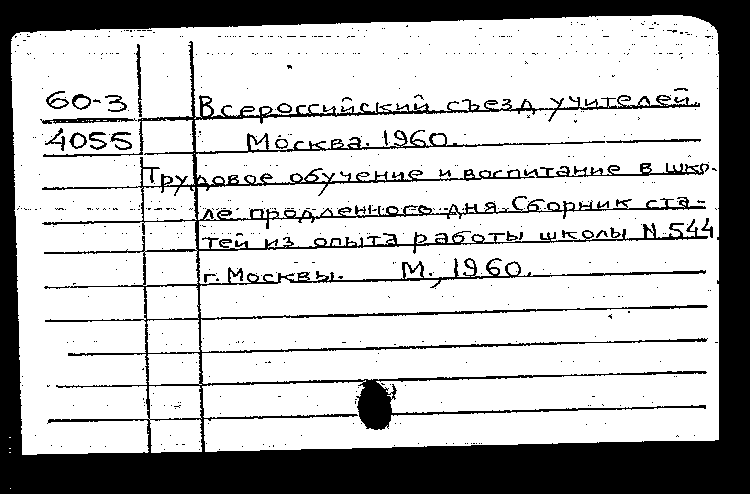 60-3 Всероссийский съезд учителей.
4055 Москва. 1960.
Трудовое обучение и воспитание в шко-
ле продленного дня. Сборник ста-
тей из опыта работы школы N.544
г. Москвы. М., 1960.